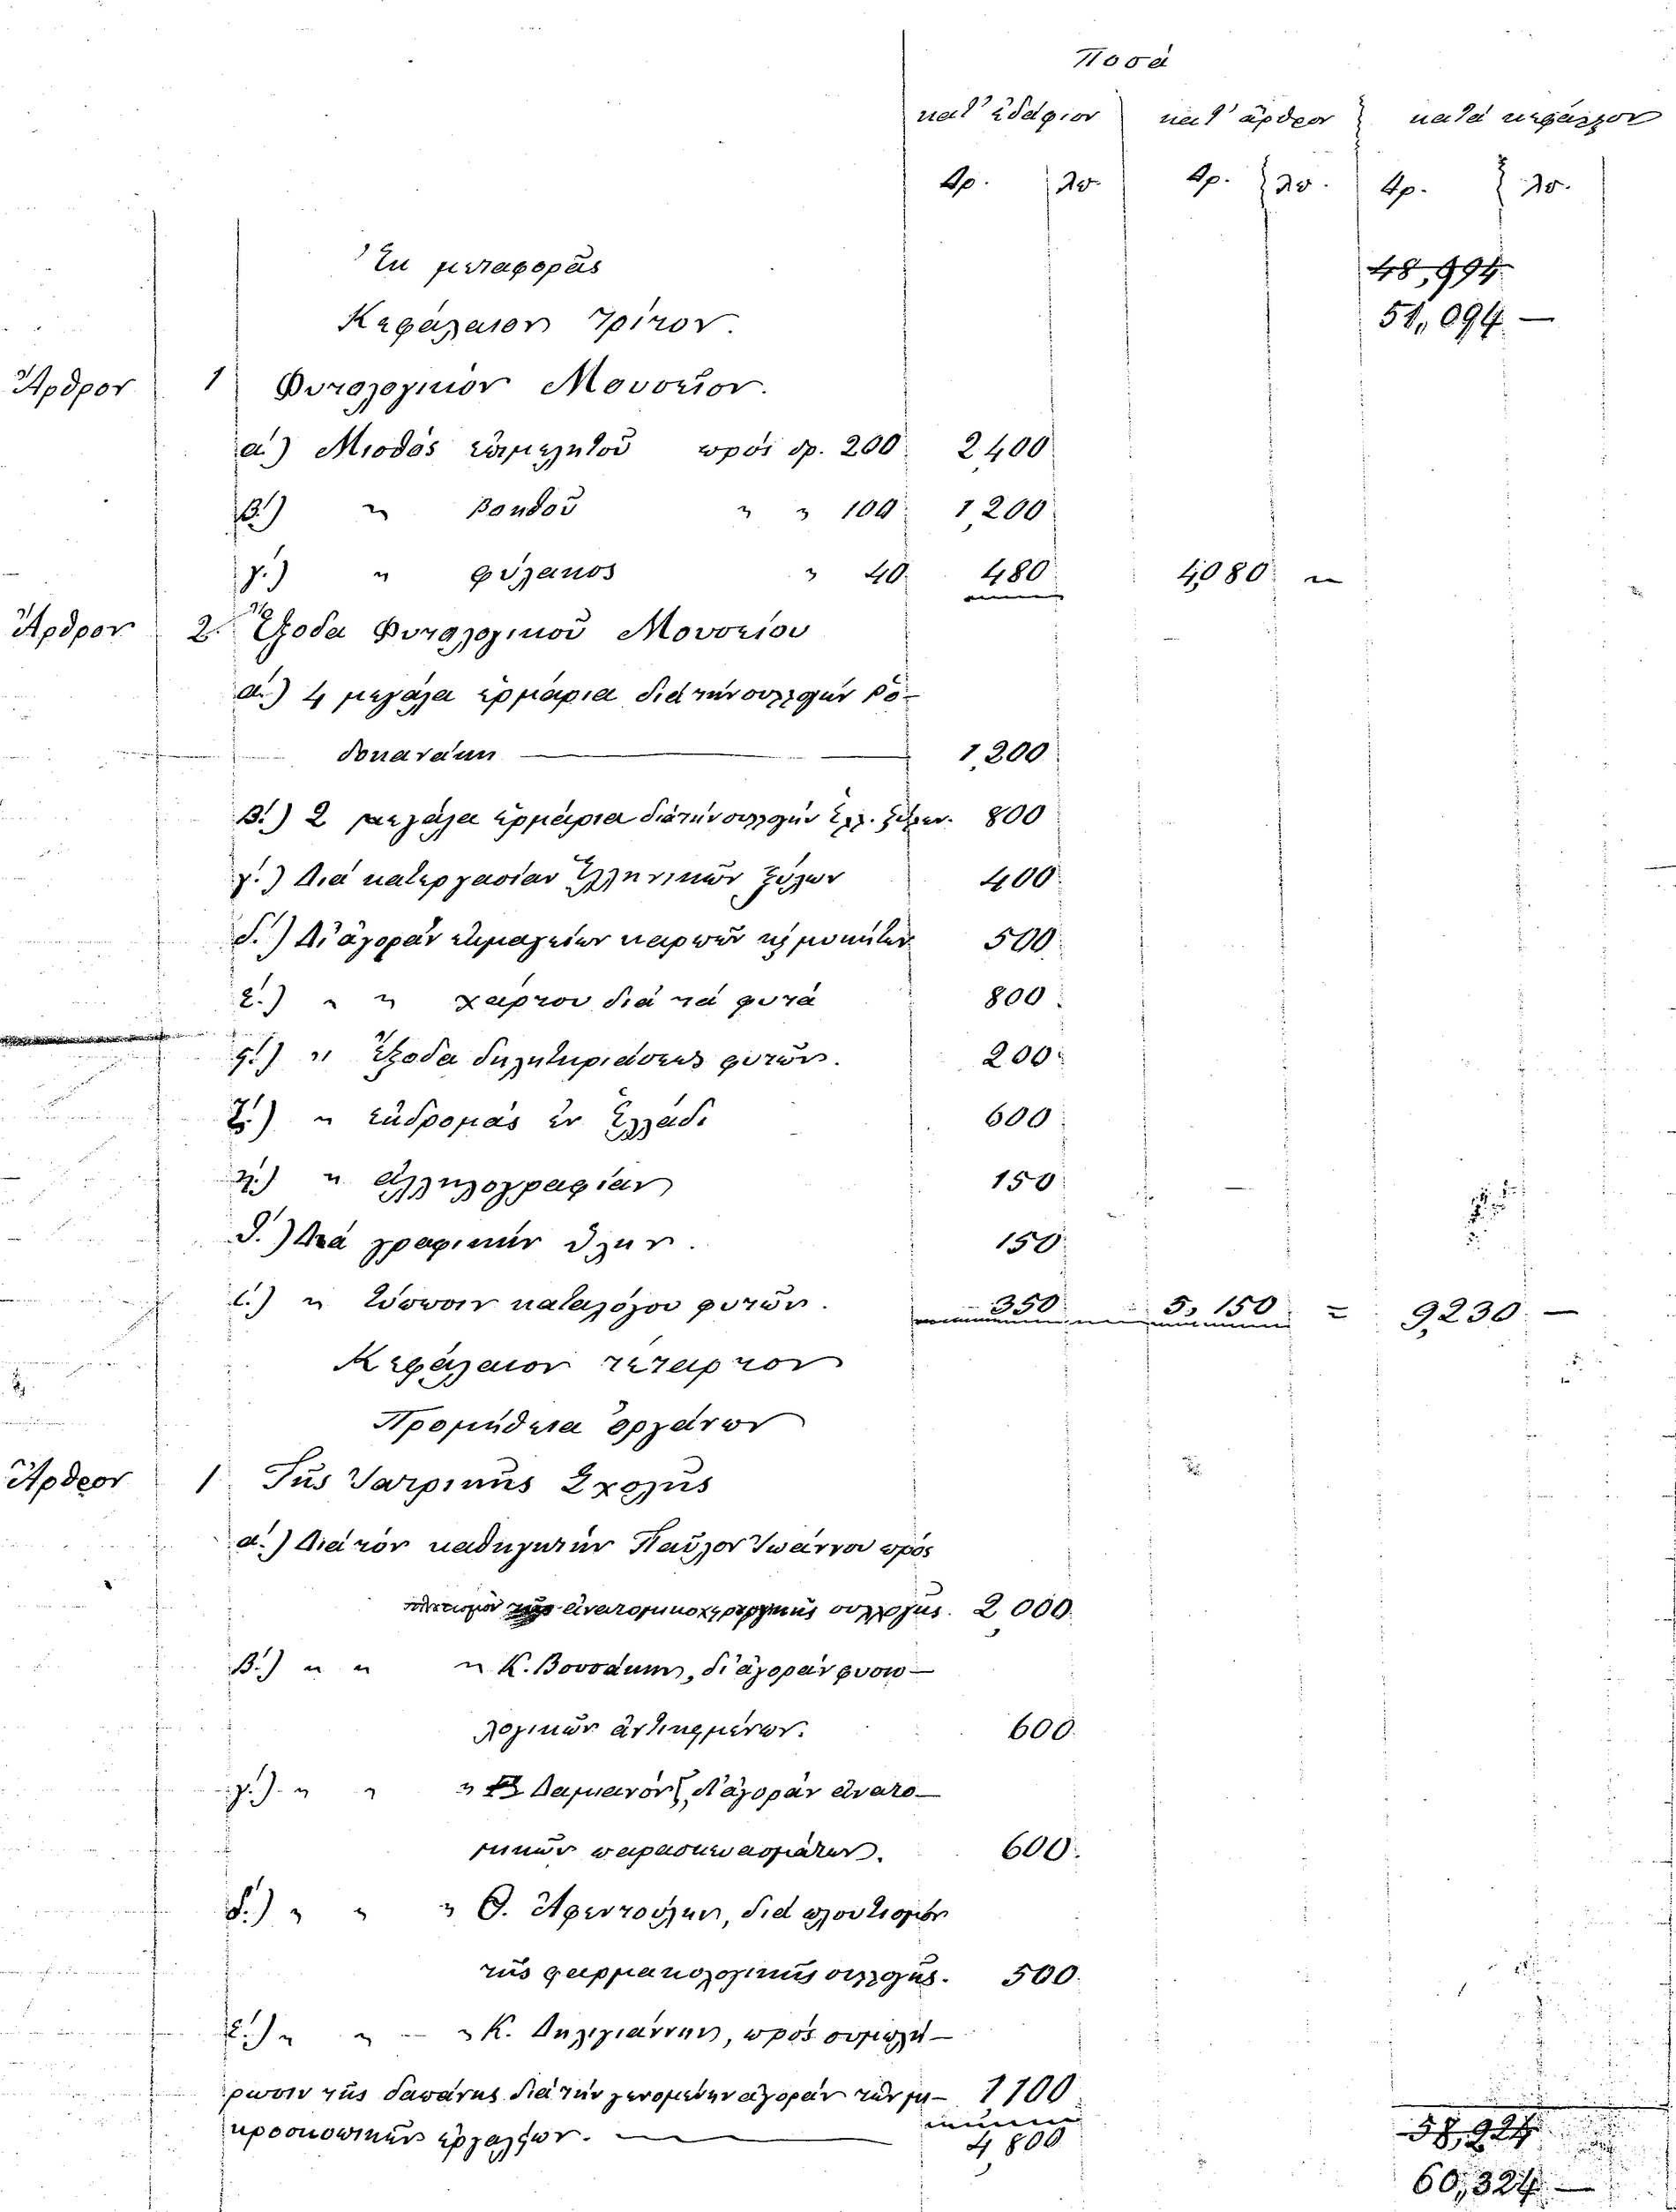 Ποσά
κατ' ἐδάφιον κατ' ἄρθρον κατὰ κεφάλαιον
Δρ. λ. Δρ. λ. Δρ. λ.
Ἐκ μεταφορᾶς 48,994
Κεφάλαιον τρίτον. 51,094 —
Ἄρθρον 1 Φυτολογικὸν Μουσεῖον.
α.) Μισθὸς ἐπιμελητοῦ πρὸς δρ. 200 2,400
β.) " βοηθοῦ " " 100 1,200
γ.) " φύλακος " 40. 480 4,080 "
Ἄρθρον 2. Ἔξοδα Φυτολογικοῦ Μουσείου
α.) 4 μεγάλα ἑρμάρια διὰ τὴν συλλογὴν Ῥο-
δονανάκη 1,200
β.) 2 μεγάλα ἑρμάρια διὰ τὴν συλλογὴν Ἑλλ. ξύλων. 800
γ.) Διὰ κατεργασίαν Ἑλληνικῶν ξύλων 400
δ.) Δι' ἀγορὰν ἐκμαγείων καρπῶν κ μυκήτων 500
ε.) " " χάρτου διὰ τὰ φυτά 800
ς.) " Ἔξοδα δηλητηριάσεως φυτῶν. 200
ζ.) " ἐκδρομὰς ἐν Ἑλλάδι 600
η.) " ἀλληλογραφίαν 150
θ.) Διὰ γραφικὴν ὕλην. 150
ι.) " τύπωσιν καταλόγου φυτῶν. 350 5,150 = 9,230 —
Κεφάλαιον τέταρτον
Προμήθεια ὀργάνων
Ἄρθρον 1 Τῆς Ἰατρικῆς Σχολῆς
α.) Διὰ τὸν καθηγητὴν Παῦλον Ἰωάννου πρὸς
τῆς ἀνατομικοχειρουργικῆς συλλογῆς. 2,000
β.) " " " Κ. Βουσάκην, δι' ἀγορὰν φυσιο-
λογικῶν ἀντικειμένων. 600
γ.) " " " Δαμιανόν, δι' ἀγορὰν ἀνατο-
μικῶν παρασκευασμάτων. 600
δ.) " " " Θ. Ἀφεντούλην, διὰ πλουτισμὸν
τῆς φαρμακολογικῆς συλλογῆς. 500
ε.) " " " Κ. Δηλιγιάννην, πρὸς συμπλή-
ρωσιν τῆς δαπάνης διὰ τὴν γενομένην ἀγορὰν τῶν μι- 1100
κροσκοπικῶν ἐργαλείων. 4,800
58,224
60,324 —